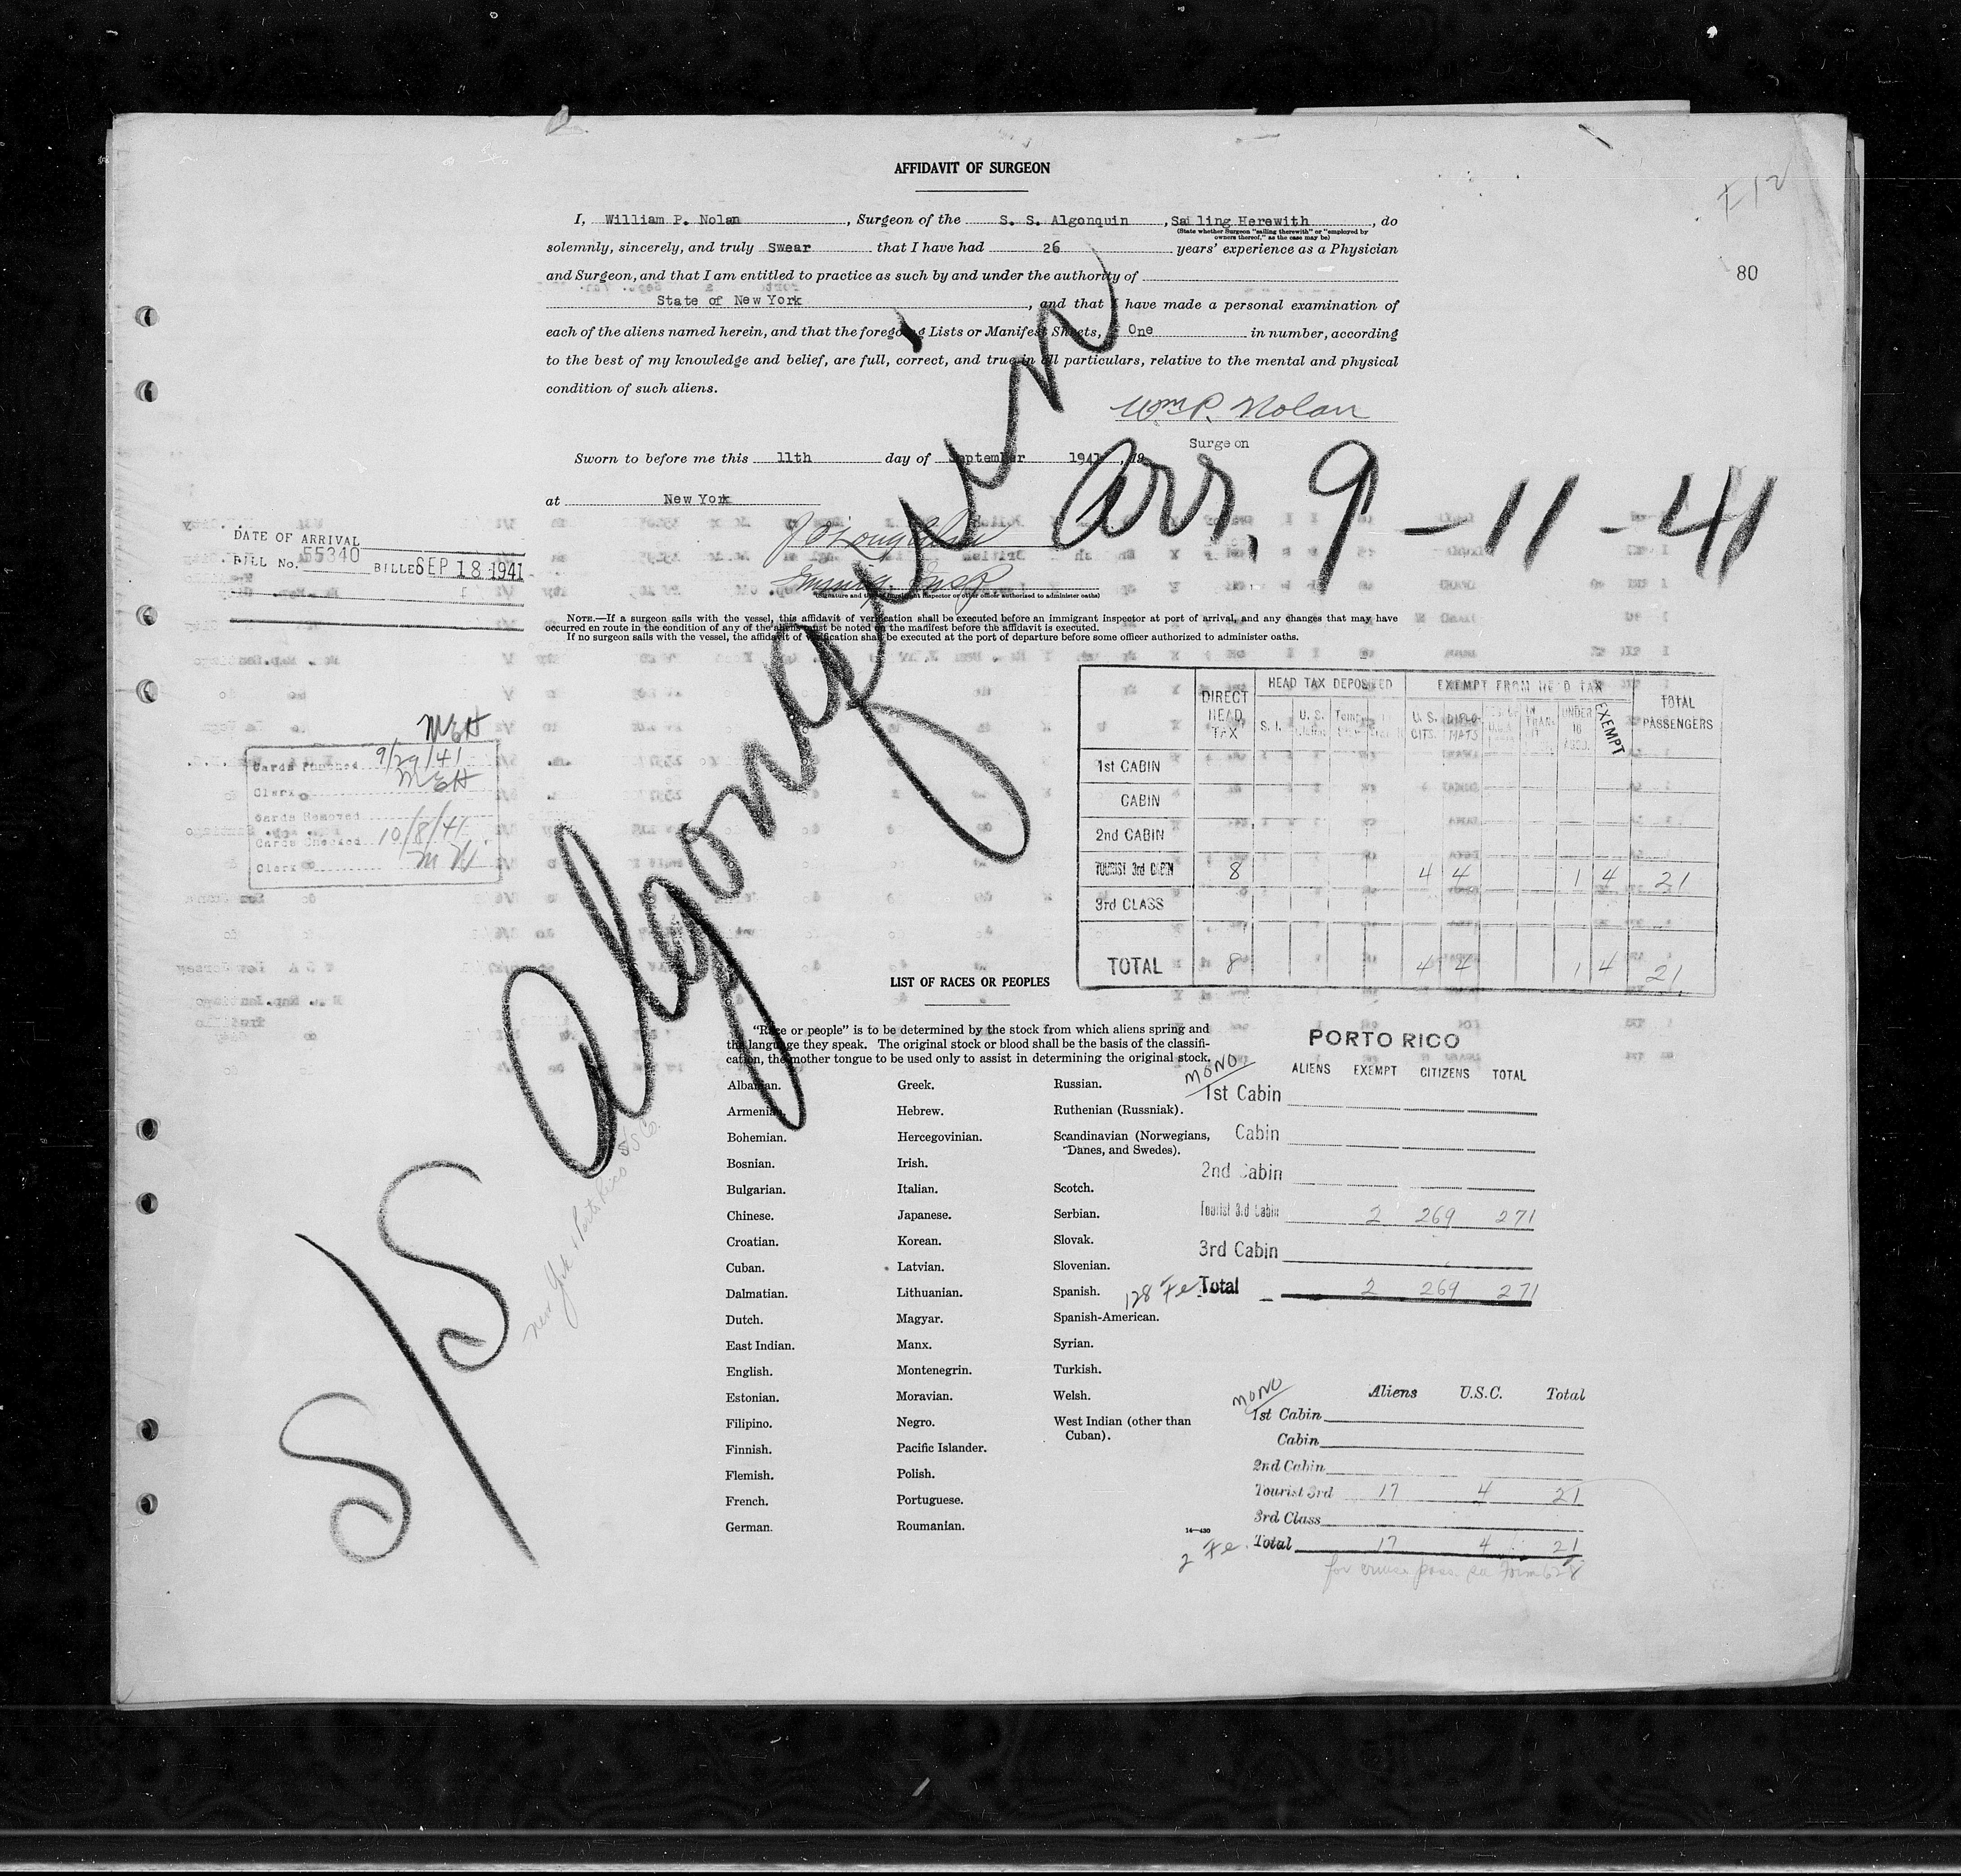 AFFIDAVIT OF SURGEON
I, William P. Nolan, Surgeon of the S. S. Algonquin, Sailing Herewith, do
(State whether Surgeon "sailing therewith" or "employed by
owners thereof," as the case may be)
solemnly, sincerely, and truly Swear that I have had 26 years' experience as a Physician
and Surgeon, and that I am entitled to practice as such by and under the authority of
State of New York, and that I have made a personal examination of
each of the aliens named herein, and that the foregoing Lists or Manifest Sheets, One in number, according
to the best of my knowledge and belief, are full, correct, and true in all particulars, relative to the mental and physical
condition of such aliens.
Wm P. Nolan
Surgeon
Sworn to before me this 11th day of September 1941, 19
at New York
Immig. Insp.
(Signature and title of immigrant inspector or other officer authorized to administer oaths)
NOTE.—If a surgeon sails with the vessel, this affidavit of verification shall be executed before an immigrant inspector at port of arrival, and any changes that may have
occurred en route in the condition of any of the aliens must be noted on the manifest before the affidavit is executed.
If no surgeon sails with the vessel, the affidavit of verification shall be executed at the port of departure before some officer authorized to administer oaths.
E12
80
S/S Algonquin
Arr. 9-11-41
New York & Porto Rico SS Co.
DATE OF ARRIVAL
BILL No. 55340 BILLED SEP 18 1941
MEH
Cards Punched 9/29/41
Clerk MEH
Cards Removed
Cards Checked 10/8/41
Clerk
DIRECT HEAD TAX
HEAD TAX DEPOSITED
EXEMPT FROM HEAD TAX
TOTAL PASSENGERS
S. I.
U. S. CITS.
DIPLO-MATS
IN TRANSIT
UNDER 16
EXEMPT
1st CABIN
CABIN
2nd CABIN
TOURIST 3rd CABIN 8 4 4 1 4 21
3rd CLASS
TOTAL 8 4 4 1 4 21
LIST OF RACES OR PEOPLES
"Race or people" is to be determined by the stock from which aliens spring and
the language they speak. The original stock or blood shall be the basis of the classifi-
cation, the mother tongue to be used only to assist in determining the original stock.
Albanian.
Armenian.
Bohemian.
Bosnian.
Bulgarian.
Chinese.
Croatian.
Cuban.
Dalmatian.
Dutch.
East Indian.
English.
Estonian.
Filipino.
Finnish.
Flemish.
French.
German.
Greek.
Hebrew.
Hercegovinian.
Irish.
Italian.
Japanese.
Korean.
Latvian.
Lithuanian.
Magyar.
Manx.
Montenegrin.
Moravian.
Negro.
Pacific Islander.
Polish.
Portuguese.
Roumanian.
Russian.
Ruthenian (Russniak).
Scandinavian (Norwegians,
Danes, and Swedes).
Scotch.
Serbian.
Slovak.
Slovenian.
Spanish.
Spanish-American.
Syrian.
Turkish.
Welsh.
West Indian (other than
Cuban).
14—430
PORTO RICO
ALIENS EXEMPT CITIZENS TOTAL
MONO
1st Cabin
Cabin
2nd Cabin
Tourist 3rd Cabin 2 269 271
3rd Cabin
128 Fe. Total 2 269 271
MONO
Aliens U.S.C. Total
1st Cabin
Cabin
2nd Cabin
Tourist 3rd 17 4 21
3rd Class
2 Fe. Total 17 4 21
for cruise pass. see Form 628